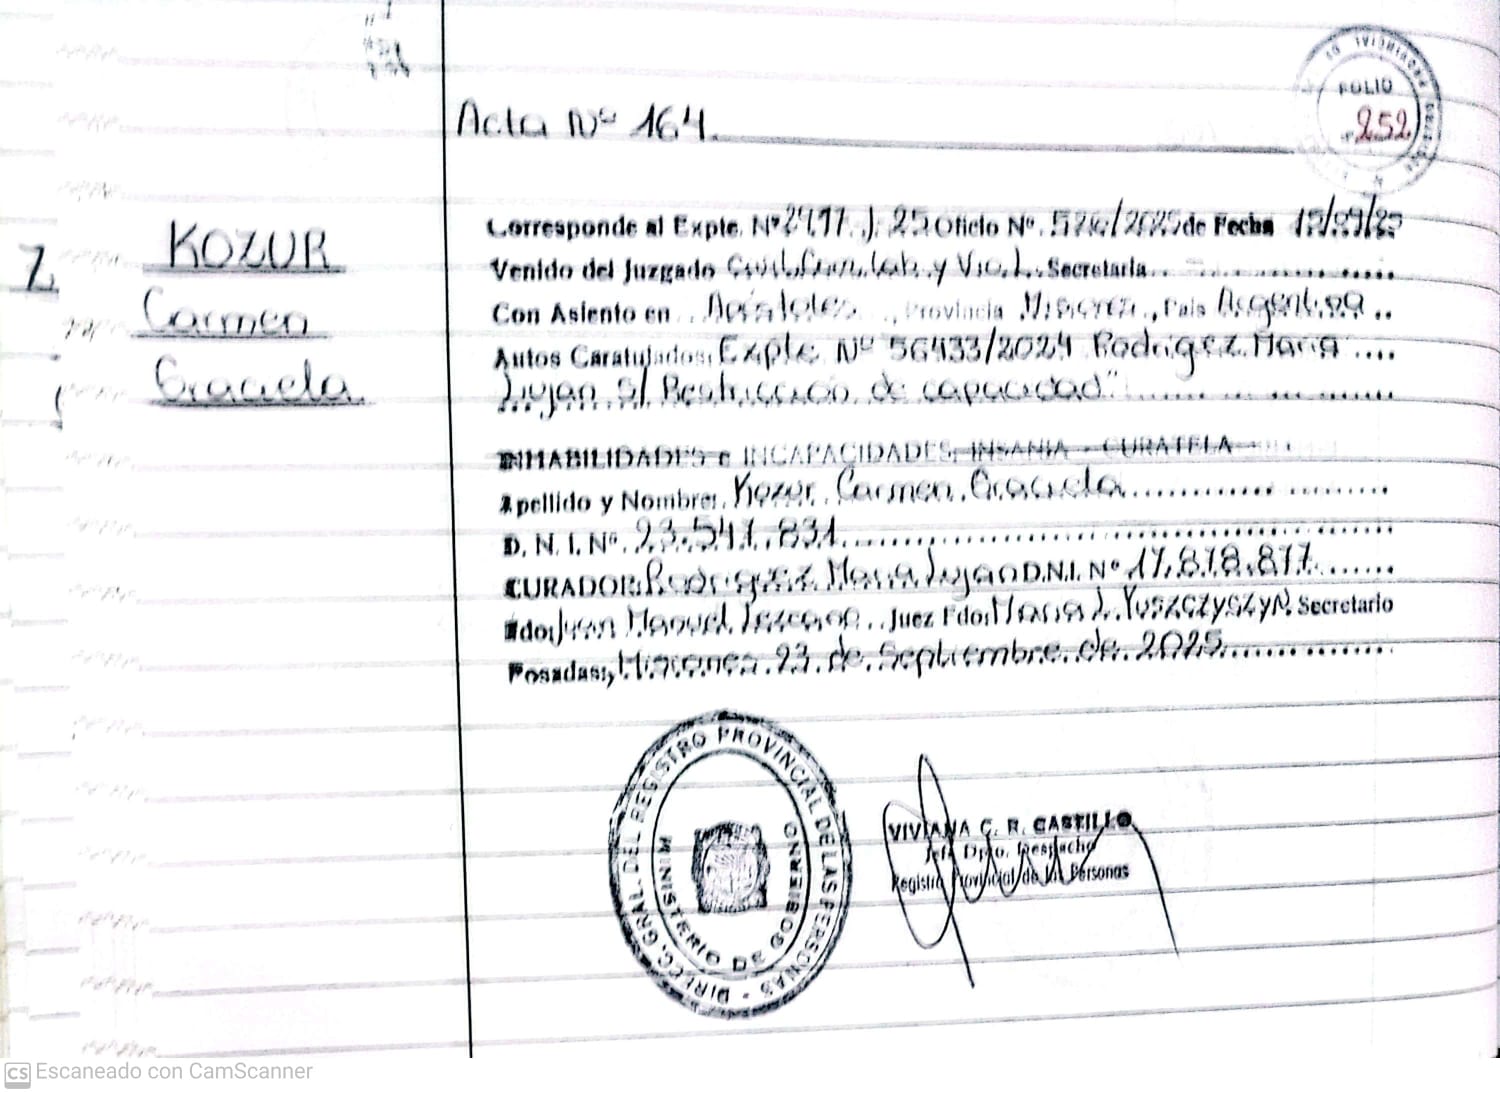 Acta Nº 164.
FOLIO
252
KOZUR
Carmen
Graciela
Corresponde al Expte. Nº 2417. J. 25 Oficio Nº. 526/2025 de Fecha 15/09/25
Venido del Juzgado Civil, Com, Lab. y Vio. 1. Secretaria
Con Asiento en Apóstoles, Provincia Misiones, Pais Argentina
Autos Caratulados: Expte Nº 56433/2024 Rodrigez Maria
Lujan S/ Restricción de capacidad"
INHABILIDADES e INCAPACIDADES, INSANIA - CURATELA
Apellido y Nombre: Kozur Carmen Graciela
D. N. I. Nº. 23.541.831
CURADOR: Rodriguez Maria Lujan D.N.I. Nº 17.818.877
Fdo: Juan Manuel Lezcano. Juez Fdo: Maria L. YUSZCZYSZYN. Secretario
Posadas, Misiones 23 de Septiembre de 2025
DIRECC. GRAL. DEL REGISTRO PROVINCIAL DE LAS PERSONAS -
MINISTERIO DE GOBIERNO
VIVIANA C. R. CASTILLO
Jefa Dpto. Despacho
Registro Provincial de las Personas
CS Escaneado con CamScanner